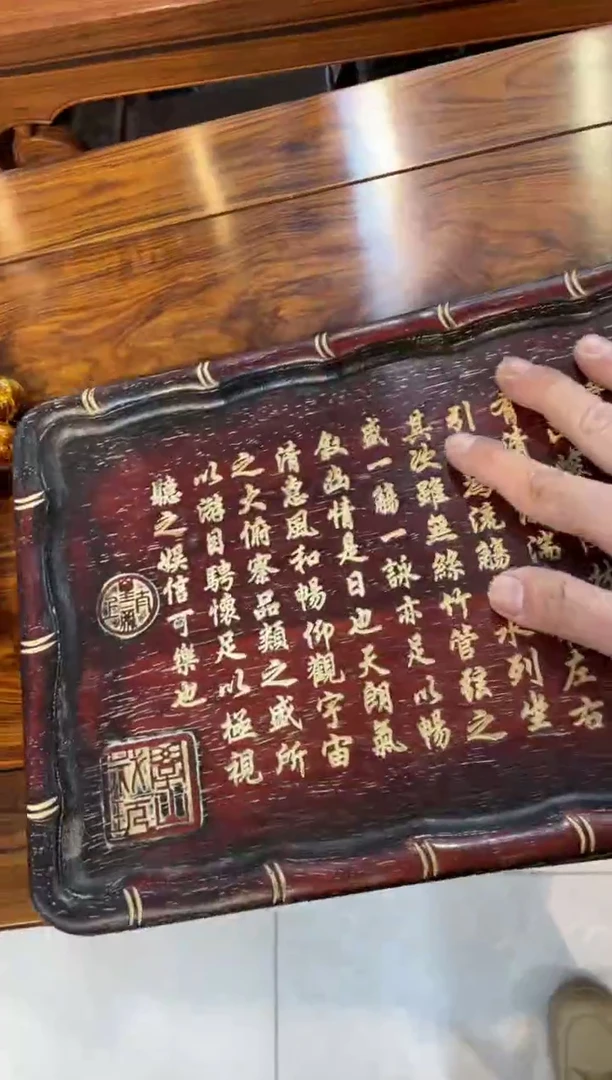 有清湍左右
引為流觴水列坐
其次雖無絲竹管弦之
盛一觴一詠亦足以暢
敘幽情是日也天朗氣
清惠風和暢仰觀宇宙
之大俯察品類之盛所
以游目騁懷足以極視
聽之娛信可樂也